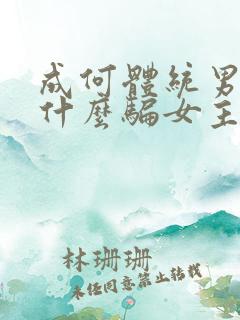 成何體統男
什麼騙女主
林珊珊
未經同意禁止轉載